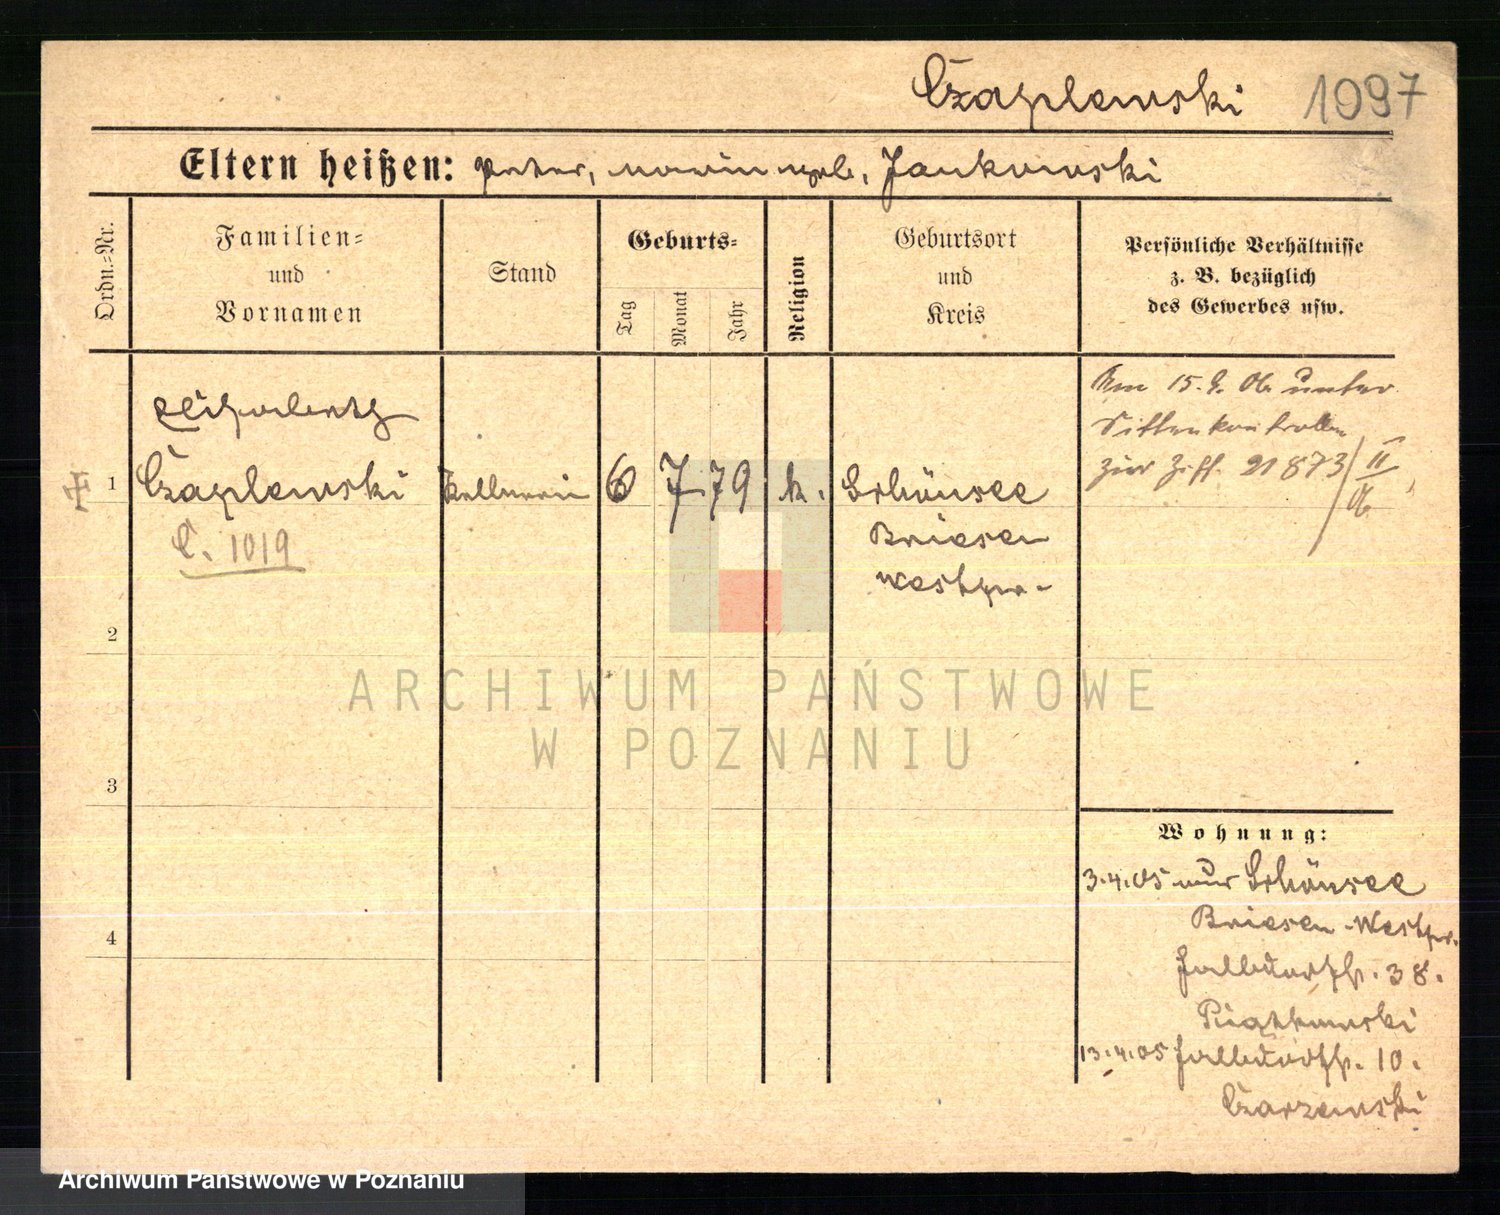 Czaplewski 1097
Eltern heißen: Peter, Marie geb. Jankowski
Ordn.=Nr.
Familien=
und
Vornamen
Stand
Geburts=
Tag
Monat
Jahr
Religion
Geburtsort
und
Kreis
Persönliche Verhältnisse
z. B. bezüglich
des Gewerbes usw.
Am 15. 9. 06 unter
Sittenkontrolle
zur Ziff. 21873/II
06
1 Czaplewski Kellnerin 6 7 79 k. Schönsee
C. 1019
Briesen
Westpr.
2
3
4
Wohnung:
3.4.05 aus Schönsee
Briesen Westpr.
Halbdorfstr. 38.
Piątkowski
13.4.05 Halbdorfstr. 10.
Czarzewski
ARCHIWUM PAŃSTWOWE
W POZNANIU
Archiwum Państwowe w Poznaniu